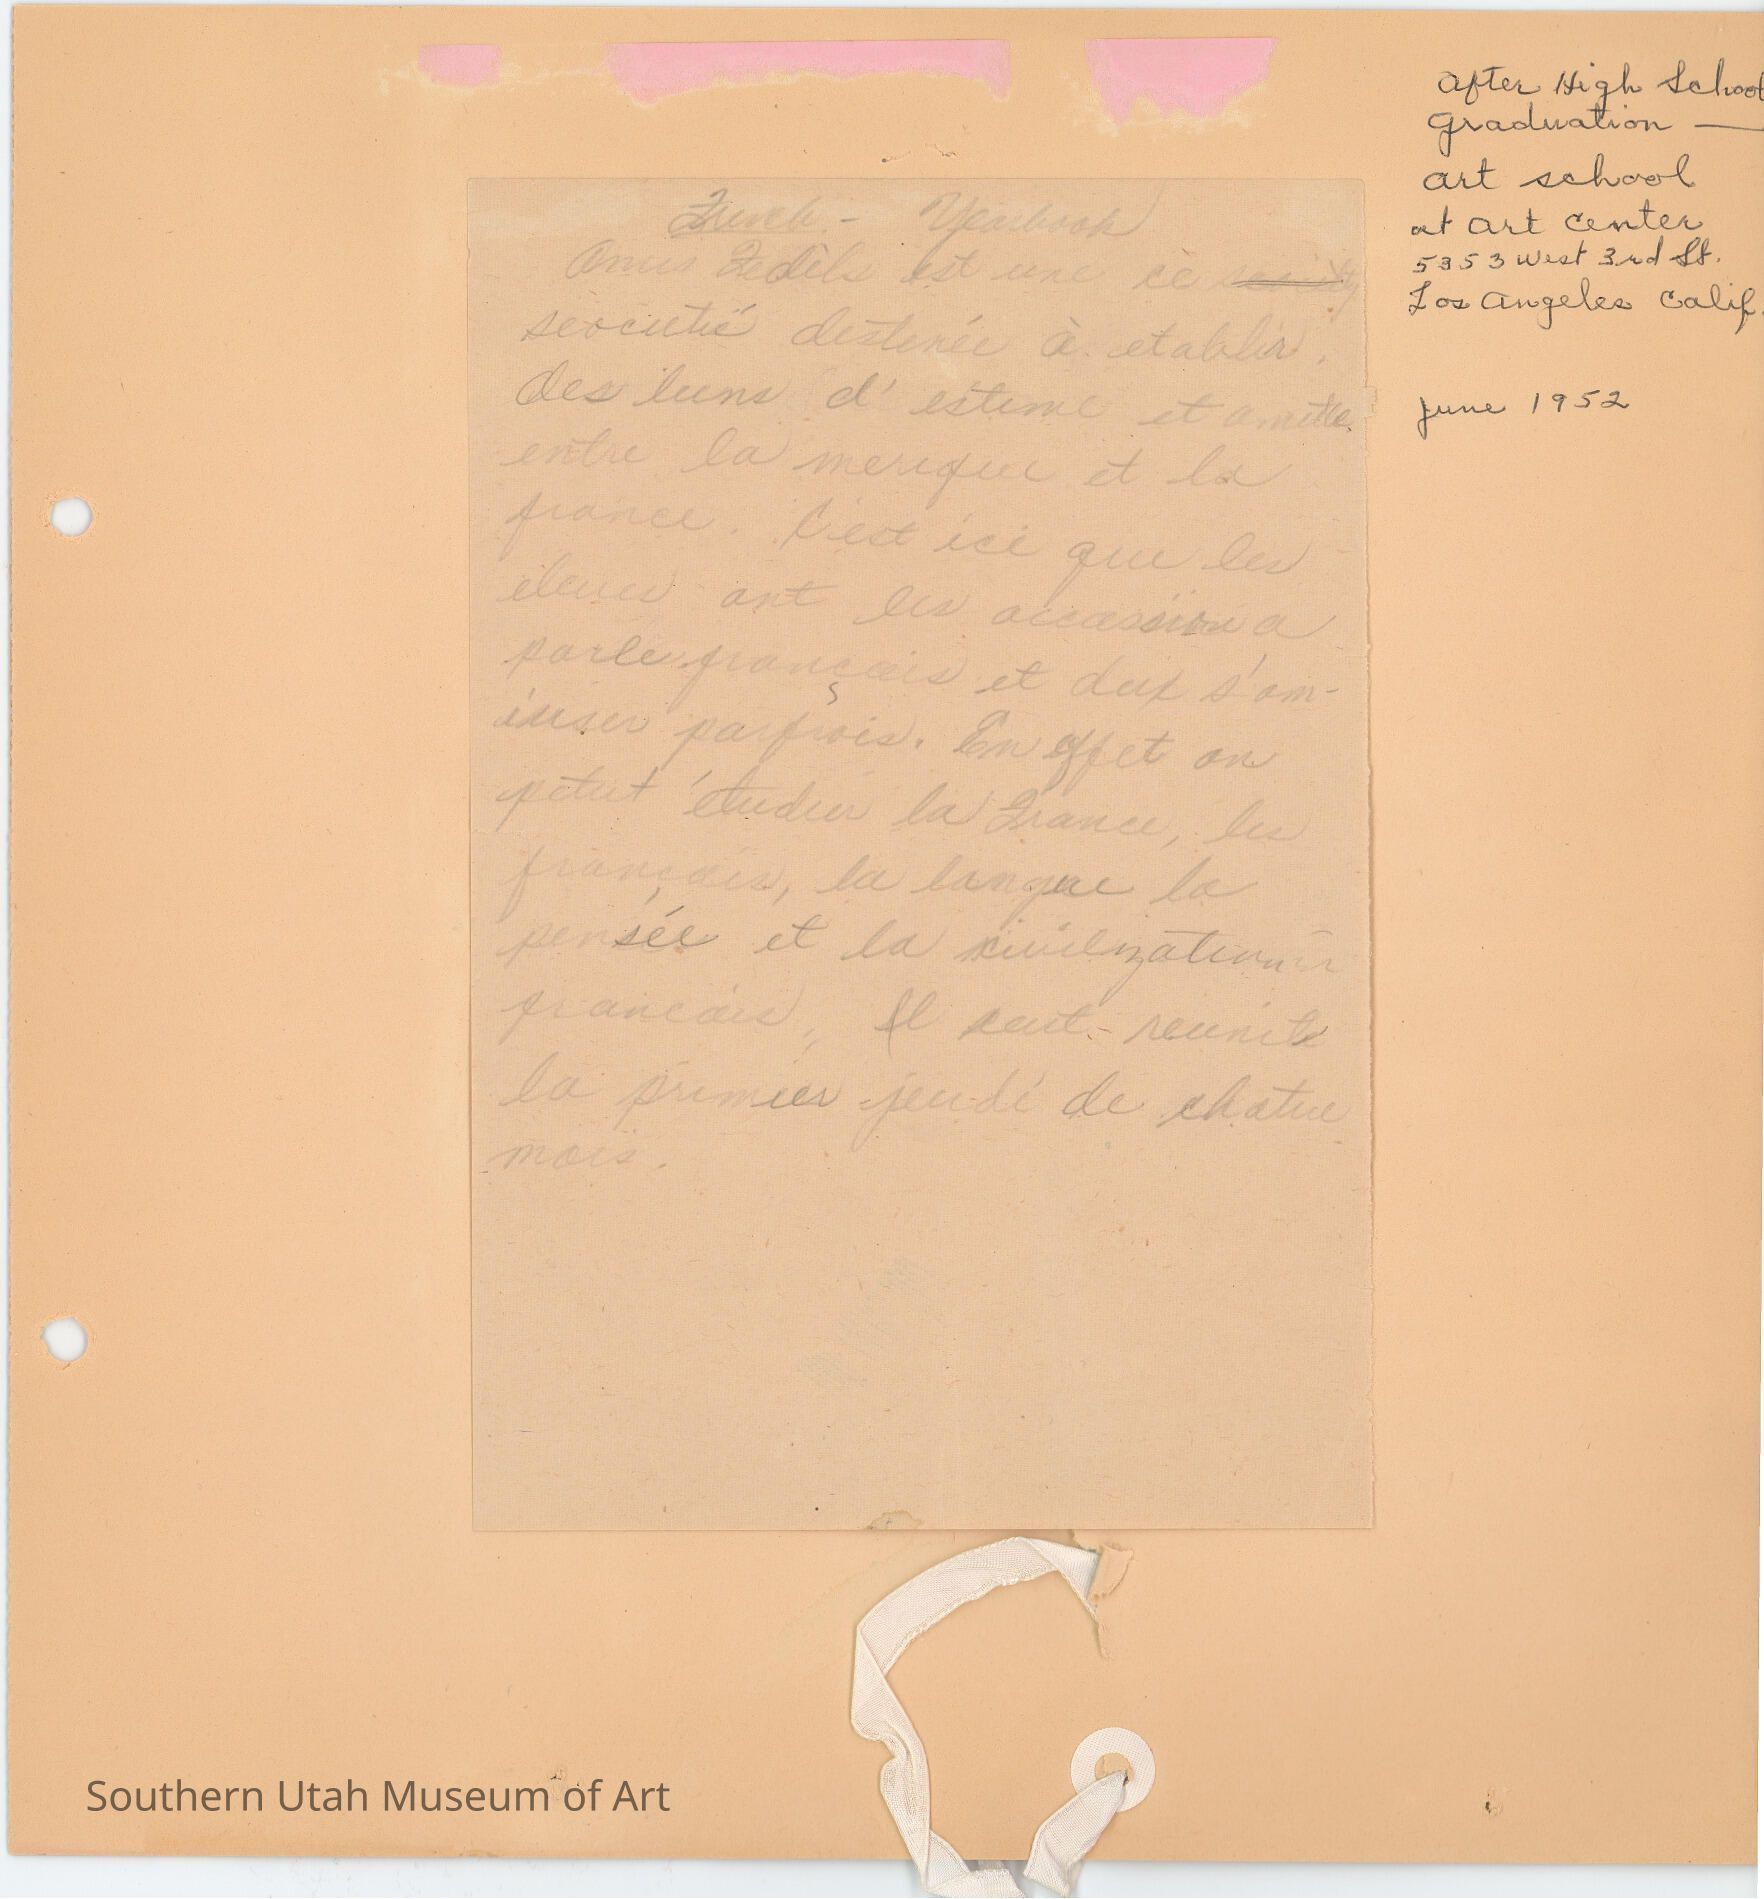 French - Yearbook
Amis Fedèls est une cè society
seocutié destinée à etablir.
des liens d'estime et amitie
entre la merique et la
france. C'est ici que les
eleves ont les occassion a
parle français et deux s'am-
iuser parfrois. En effet on
petut étudier la France, les
français, la langue la
pensée et la civilization
francais, Il reunite
la primier jeudi de chatue
mois.
After High School
Graduation —
art school
at Art Center
5353 West 3rd St.
Los Angeles Calif.
June 1952
Southern Utah Museum of Art